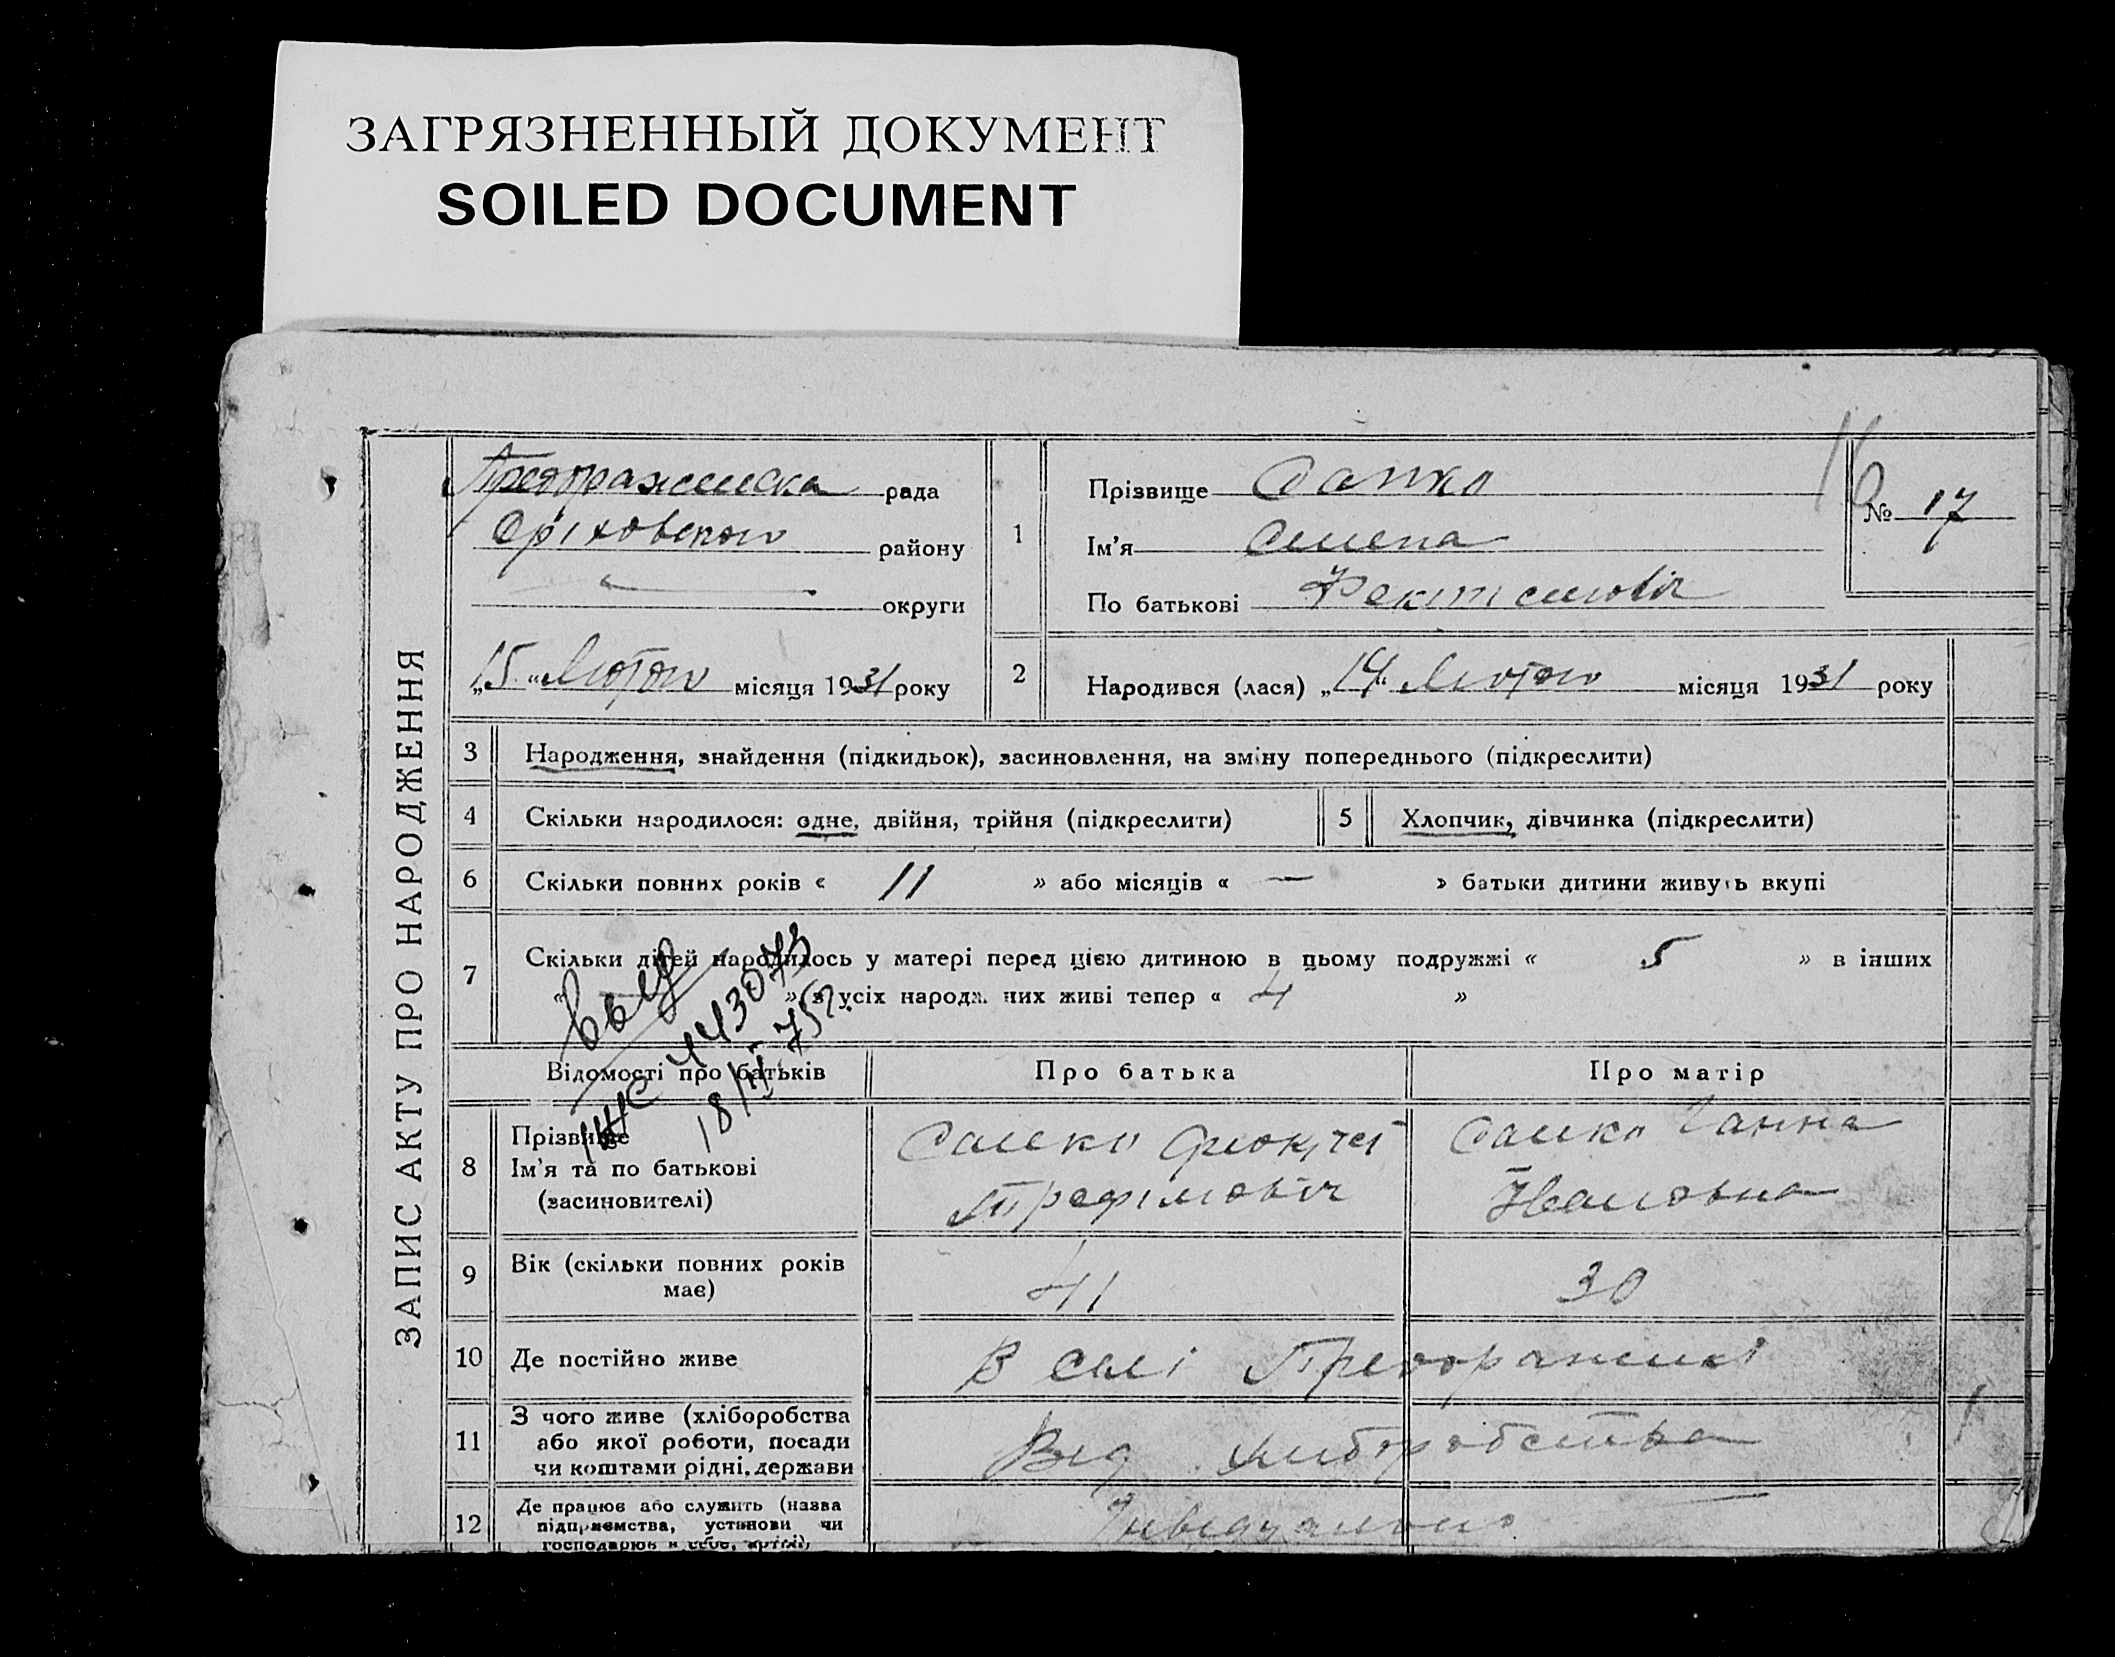 ЗАГРЯЗНЕННЫЙ ДОКУМЕНТ
SOILED DOCUMENT
ЗАПИС АКТУ ПРО НАРОДЖЕННЯ
рада
Оріховского району
округи
„15“ Лютого місяця 1931 року
1
Прізвище
Ім'я
По батькові
№ 17
2
Народився (лася) „14“ Лютого місяця 1931 року
3 Народження, знайдення (підкидьок), засиновлення, на зміну попереднього (підкреслити)
4 Скільки народилося: одне, двійня, трійня (підкреслити)
5 Хлопчик, дівчинка (підкреслити)
6 Скільки повних років « 11 » або місяців « — » батьки дитини живуть вкупі
7 Скільки дітей народилось у матері перед цією дитиною в цьому подружжі « 5 » в інших
« — » з усіх народж. них живі тепер « 4 »
443073
18/II 75
Відомості про батьків
Про батька
Про матір
8 Прізвище
Ім'я та по батькові
(засиновителі)
Трефімовіч
Ганна
Івановна
9 Вік (скільки повних років
має)
41
30
10 Де постійно живе
В селі
11 З чого живе (хліборобства
або якої роботи, посади
чи коштами рідні, держави
Від хлиборобства
12 Де працює або служить (назва
підприємства, установи чи
господарює в себе, артілі)